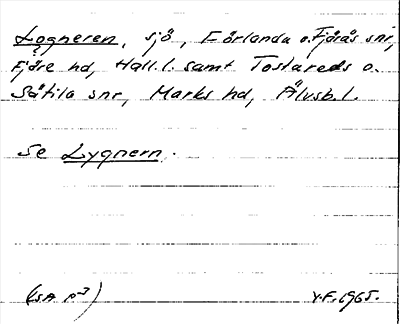 Logneren, sjö, Förlanda o. Fjärås snr,
Fjäre hd, Hall. l. samt Tostareds o.
Sätila snr, Marks hd, Älvsb. l.
Se Lygnern.
V.F. 1965.